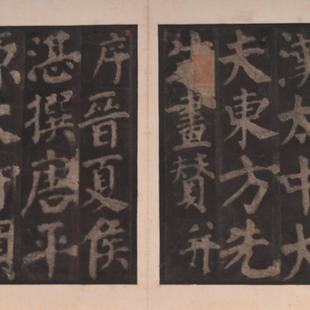 漢太中大
夫東方先
生畫賛并
序晉夏侯
湛撰唐平
原太守顏